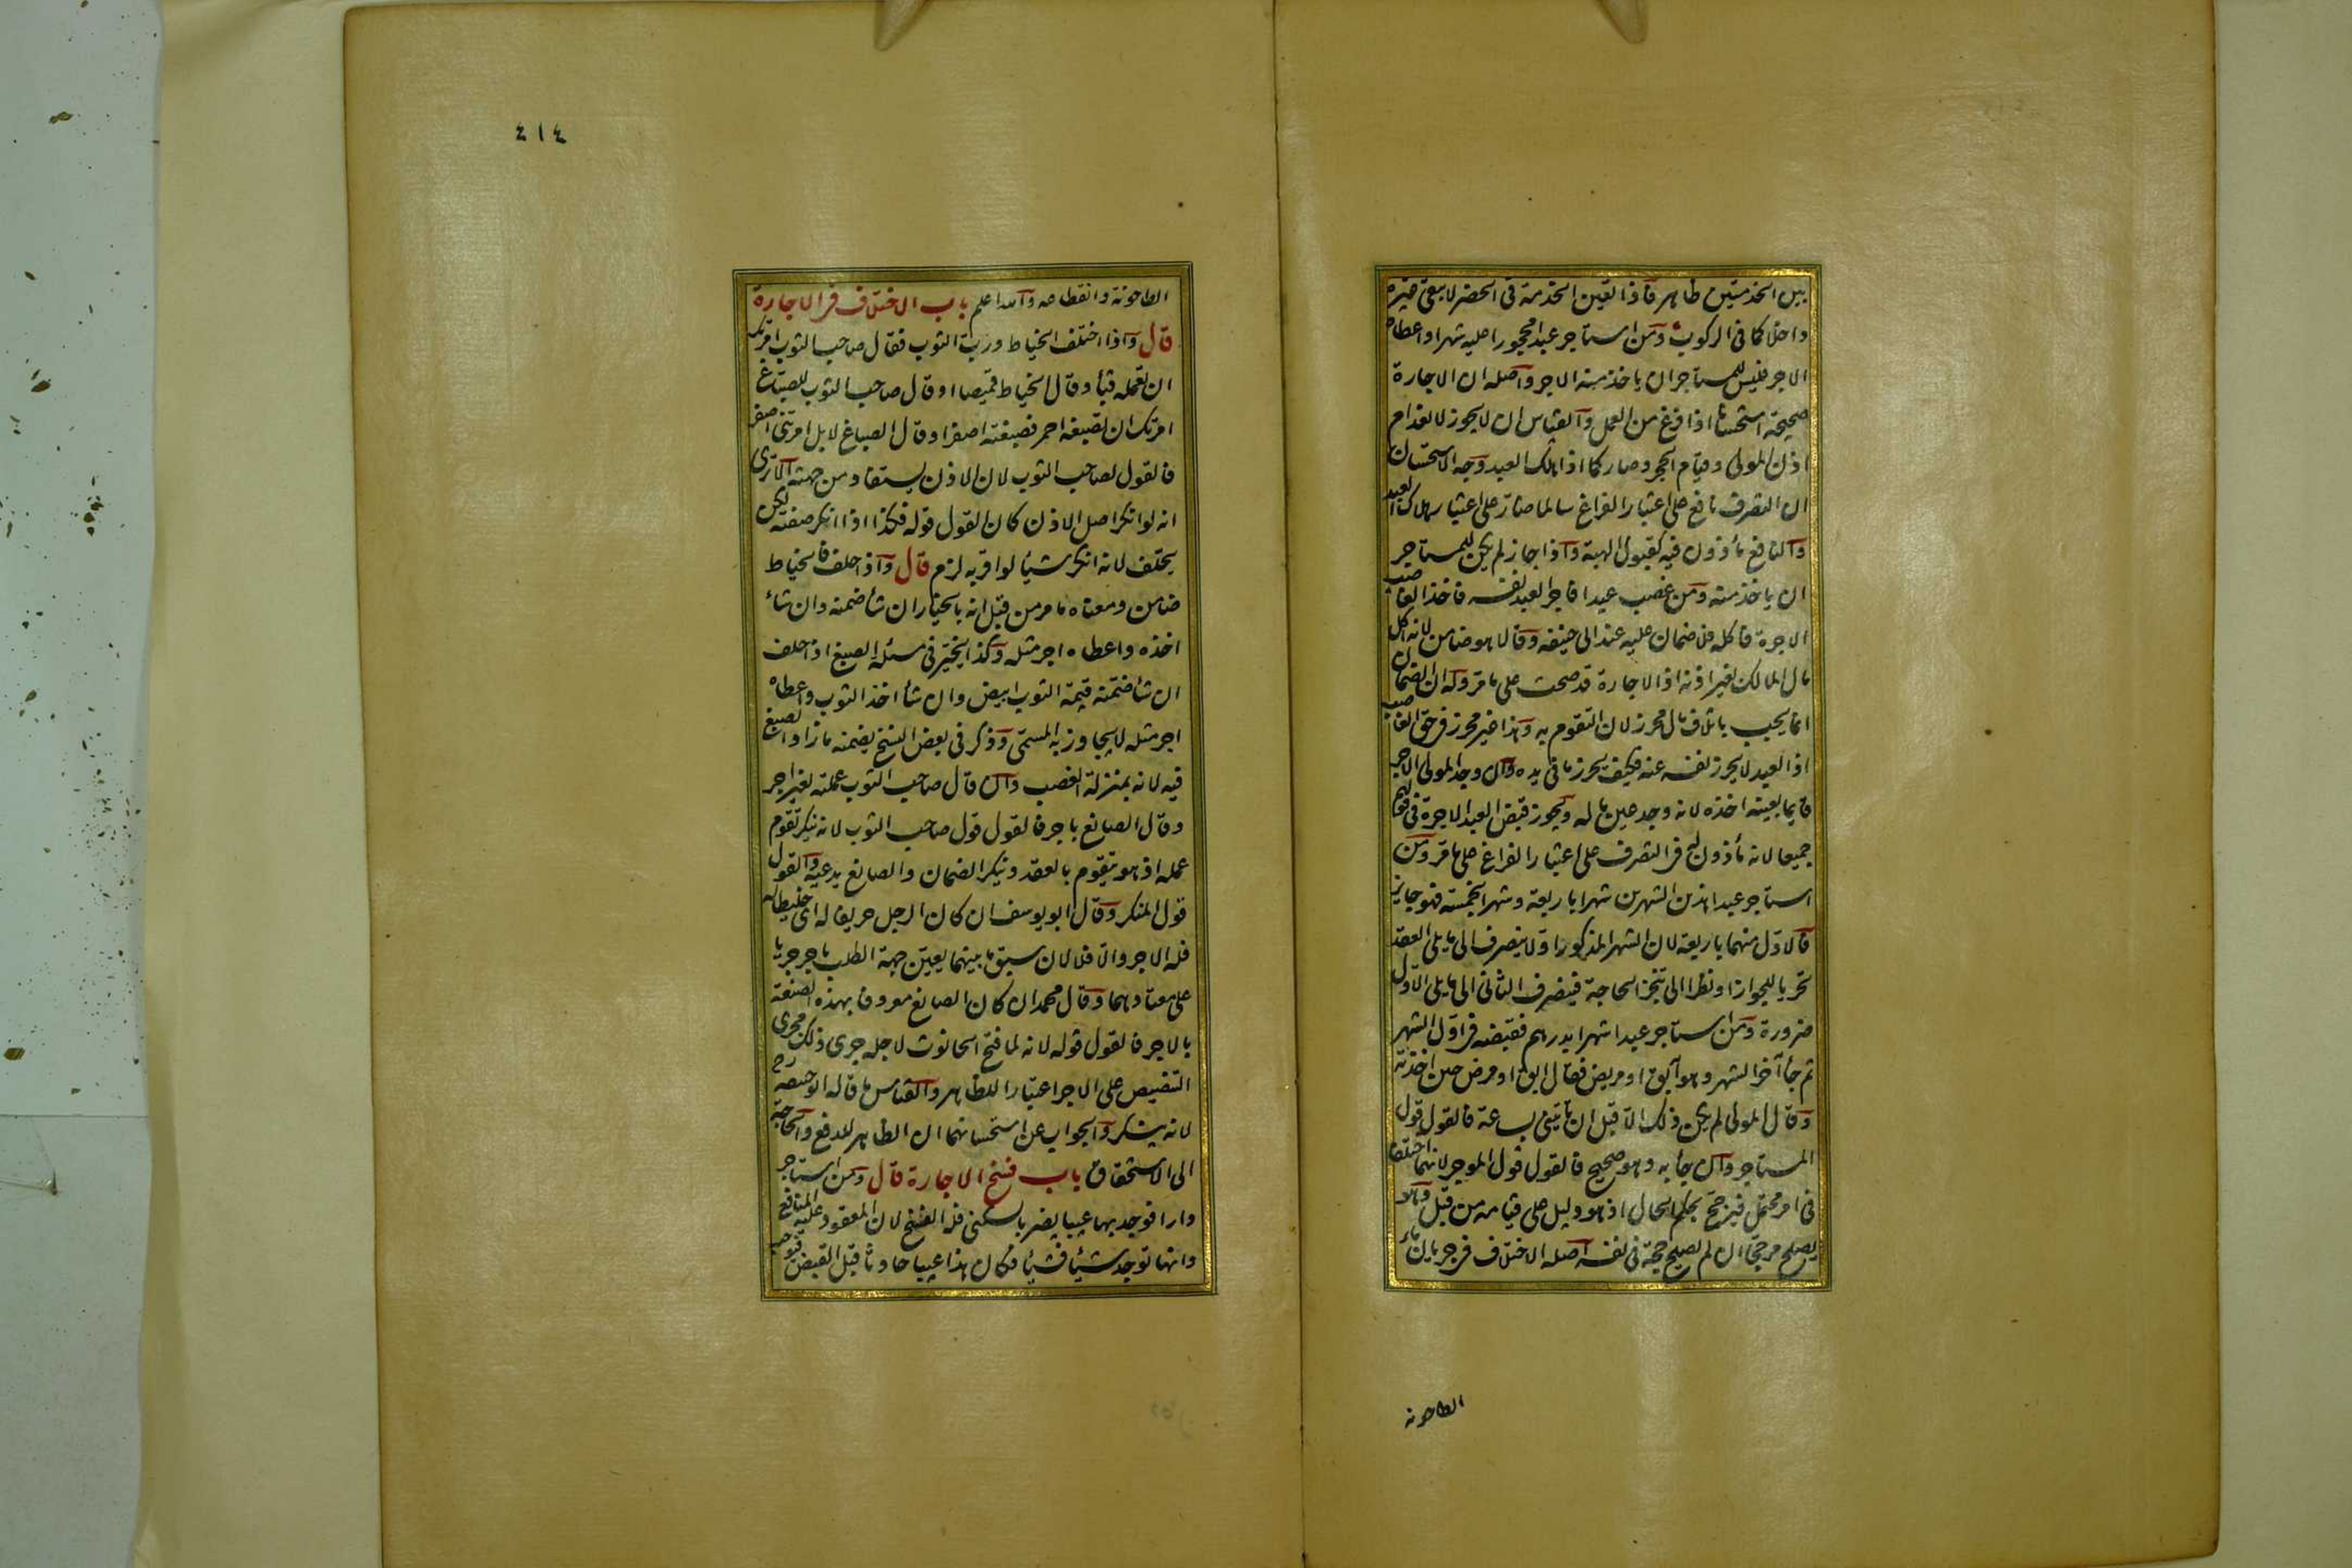 بين الخدمتين ظاهر فاذا تعين الخدمة فى الحضر لا يبقى غيره
داخلا كما فى الركوب ومن استاجر عبدا محجورا عليه شهرا واعطاه
الاجر فليس للمستاجر ان ياخذ منه الاجر واصله ان الاجارة
صحيحة استحسانا اذا فرغ من العمل والقياس ان لا يجوز لانعدام
اذن المولى وقيام الحجر وصار كما اذا هلك العبد وجه الاستحسان
ان التصرف نافع على اعتبار الفراغ سالما ضار على اعتبار هلاك العبد
والنافع مأذون فيه كقبول الهبة واذا جاز لم يكن للمستاجر
ان ياخذ منه ومن غصب عبدا فاجر العبد نفسه فاخذ الغاصب
الاجرة فاكله فلا ضمان عليه عند ابى حنيفه وقالا هو ضامن لانه اكل
مال المالك بغير اذنه اذ الاجارة قد صحت على ما مر وله ان الضمان
انما يجب باتلاف مال محرز لان التقوم به وهذا غير محرز فى حق الغاصب
اذ العبد لا يحرز نفسه عنه فكيف يحرز ما فى يده وان وجد المولى الاجر
قايما بعينه اخذه لانه وجد عين ماله ويجوز قبض العبد الاجرة فى قولهم
جميعا لانه مأذون له فى التصرف على اعتبار الفراغ على ما مر ومن
استاجر عبدا هذين الشهرين شهرا باربعة وشهرا بخمسة فهو جايز
فالاول منهما باربعة لان الشهر المذكور اولا ينصرف الى ما يلى العقد
تحريا للجواز او نظرا الى تنجز الحاجة فينصرف الثانى الى ما يلى الاول
ضرورة ومن استاجر عبدا شهرا بدرهم فقبضه فى اول الشهر
ثم جأ آخر الشهر وهو آبق او مريض فقال ابق او مرض حين اخذته
وقال المولى لم يكن ذلك الا قبل ان تأتينى بساعة فالقول قول
المستاجر وان جأ به وهو صحيح فالقول قول الموجر لانهما اختلفا
فى امر محتمل فيرجح بحكم الحال اذ هو دليل على قيامه من قبل وهو
يصلح مرجحا ان لم يصلح حجة فى نفسه اصله الاختلاف فى جريان ماء
الطاحونه
٤١٤
الطاحونة وانقطاعه والله اعلم باب الاختلاف فى الاجارة
قال واذا اختلف الخياط ورب الثوب فقال صاحب الثوب امرتك
ان تعمله قبأ وقال الخياط قميصا او قال صاحب الثوب للصباغ
امرتك ان تصبغه احمر فصبغته اصفر او قال الصباغ لا بل امرتنى اصفر
فالقول لصاحب الثوب لان الاذن يستفاد من جهته الا ترى
انه لو انكر اصل الاذن كان القول قوله فكذا اذا انكر صفته لكن
يحلف لانه انكر شيأ لو اقر به لزمه قال واذا حلف فالخياط
ضامن ومعناه ما مر من قبل انه بالخيار ان شأ ضمنه وان شاء
اخذه واعطاه اجر مثله وكذا يخير فى مسئلة الصبغ اذا حلف
ان شأ ضمنه قيمة الثوب ابيض وان شأ اخذ الثوب واعطاه
اجر مثله لا يجاوز به المسمى وذكر فى بعض النسخ يضمنه ما زاد الصبغ
فيه لانه بمنزلة الغصب وان قال صاحب الثوب عملته لى بغير اجر
وقال الصانع باجر فالقول قول صاحب الثوب لانه ينكر تقوم
عمله اذ هو يتقوم بالعقد وينكر الضمان والصانع يدعيه والقول
قول المنكر وقال ابو يوسف ان كان الرجل حريفا له اى خليطا له
فله الاجر والا فلا لان سبق ما بينهما يعين جهة الطلب باجر جريا
على معتادهما وقال محمد ان كان الصانع معروفا بهذه الصنعة
بالاجر فالقول قوله لانه لما فتح الحانوت لاجله جرى ذلك مجرى
التنصيص على الاجر اعتبارا للظاهر والقياس ما قاله ابو حنيفه رح
لانه منكر والجواب عن استحسانهما ان الظاهر للدفع والحاجة
الى الاستحقاق باب فسخ الاجارة قال ومن استاجر
دارا فوجد بها عيبا يضر بالسكنى فله الفسخ لان المعقود عليه المنافع
وانها توجد شيأ فشيأ فكان هذا عيبا حادثا قبل القبض فيوجب